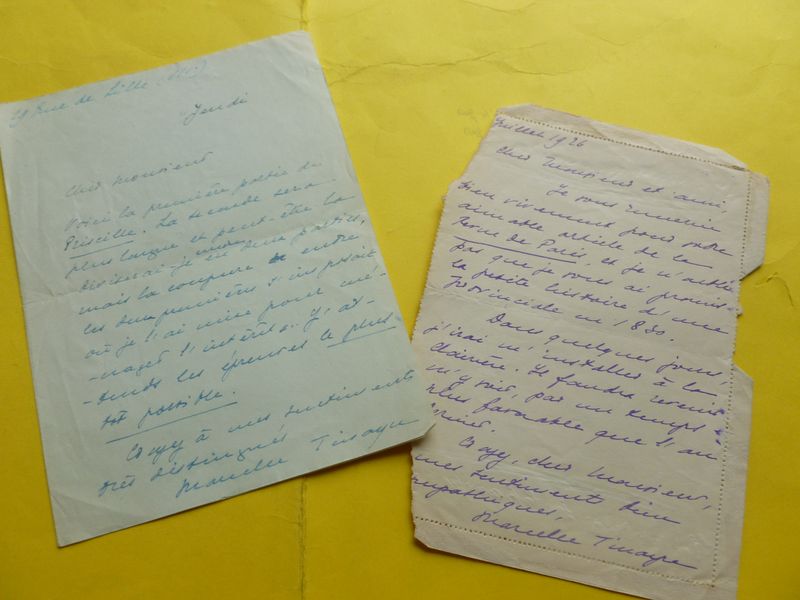 29 Rue de Lille (VIIe)
Jeudi
Cher monsieur
Voici la première partie de
Priscille. La seconde sera
plus longue et peut-être la
diviserai-je en deux parties,
mais la coupure entre
les deux premières s'imposait
où je l'ai mise pour mé-
-nager l'intérêt. J'at-
-tends les épreuves le plus
tôt possible.
Croyez à mes sentiments
très distingués
Marcelle Tinayre
Juillet 1926
Cher Monsieur et ami,
Je vous remercie
bien vivement pour votre
aimable article de la
Revue de Paris, et je n'oublie
pas que je vous ai promis
la petite histoire d'une
provinciale en 1830.
Dans quelques jours,
j'irai m'installer à la
Clairière. Il faudra revenir
m'y voir, par un temps
plus favorable que l'an
dernier.
Croyez, cher Monsieur,
à mes sentiments bien
sympathiques,
Marcelle Tinayre